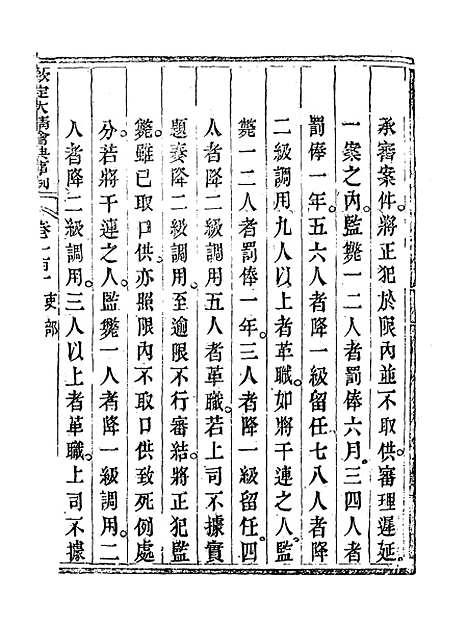 承審案件將正犯於限內並不取供審理遲延。
一案之內監斃一二人者罰俸六月。三四人者
罰俸一年。五六人者降一級留任七八人者降
二級調用九人以上者革職。如將干連之人監
斃一二人者罰俸一年。三人者降一級留任。四
人者降二級調用五人者革職。若上司不據實
題奏降二級調用。至逾限不行審結將正犯監
斃雖已取口供亦照限內不取口供致死例處
分若將干連之人監斃一人者降一級調用。二
人者降二級調用。三人以上者革職。上司不據
欽定大清會典事例 卷一百一 吏部